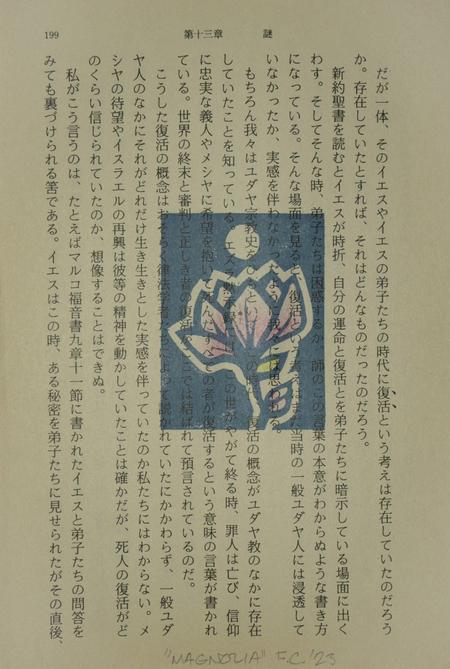 199 第十三章 謎
だが一体、そのイエスやイエスの弟子たちの時代に復活という考えは存在していたのだろう
か。存在していたとすれば、それはどんなものだったのだろう。
新約聖書を読むとイエスが時折、自分の運命と復活とを弟子たちに暗示している場面に出く
わす。そしてそんな時、弟子たちは困惑するか、師のこの言葉の本意がわからぬような書き方
になっている。そんな場面を見ると、復活という考えはまだ当時の一般ユダヤ人には浸透して
いなかったか、実感を伴わなかったように我々には思われる。
もちろん我々はユダヤ宗教史をひもといて、の時、復活の概念がユダヤ教のなかに存在
していたことを知っている。エズラ黙示録には、の世がやがて終る時、罪人は亡び、信仰
に忠実な義人やメシヤに希望を抱いて死んだすべての者が復活するという意味の言葉が書かれ
ている。世界の終末と審判と正しき者の復活がここでは結ばれて預言されているのだ。
こうした復活の概念はおそらく律法学者たちによって説かれていたにかかわらず、一般ユダ
ヤ人のなかにそれがどれだけ生き生きとした実感を伴っていたのか私たちにはわからない。メ
シヤの待望やイスラエルの再興は彼等の精神を動かしていたことは確かだが、死人の復活がど
のくらい信じられていたのか、想像することはできぬ。
私がこう言うのは、たとえばマルコ福音書九章十一節に書かれたイエスと弟子たちの問答を
みても裏づけられる筈である。イエスはこの時、ある秘密を弟子たちに見せられたがその直後、
"MAGNOLIA" F.C. '23